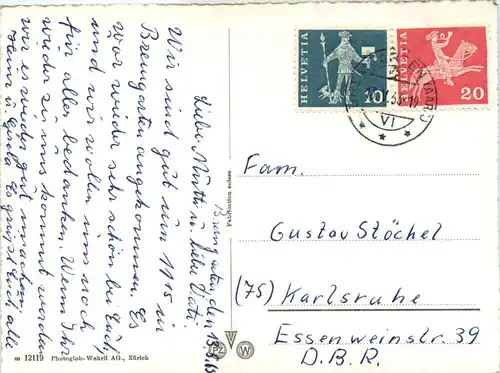 HELVETIA
10
HELVETIA
20
VI
Bremgarten, den
Liebe Mutti u. liebe Vati.
Wir sind gut um 19¹⁵ in
Bremgarten angekommen. Es
war wieder sehr schön bei Euch,
und wir wollen uns noch
für alles bedanken. Wenn Ihr
wieder zu uns kommt werden
wir es wieder gut machen.
Es grüsst Euch alle
Fabrication suisse
Fam.
Gustav Stöchel
(75) Karlsruhe
Essenweinstr. 39
D.B.R.
m 12119 Photoglob-Wehrli AG., Zürich
PZ W